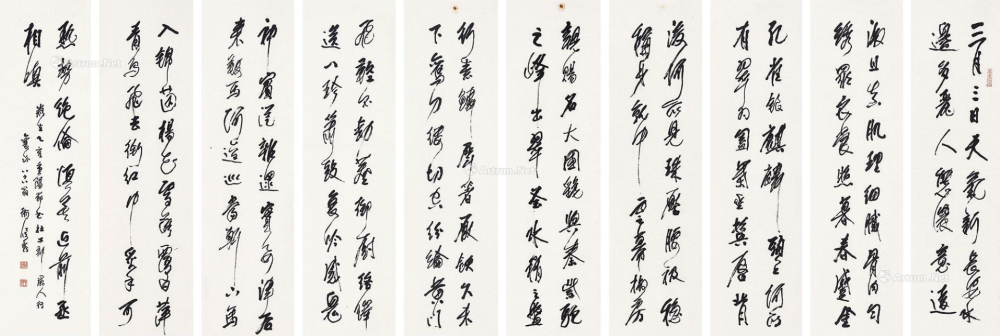 三月三日天氣新長安水
邊多麗人態濃意遠
淑且真肌理細膩骨肉勻
繡羅衣裳照暮春蹙金
孔雀銀麒麟頭上何所
有翠為㔩葉垂鬢唇背
後何所見珠壓腰衱穩
稱身就中雲幕椒房
親賜名大國虢與秦紫駝
之峰出翠釜水精之盤
行素鱗犀箸厭飫久未
下鸞刀縷切空紛綸黃門
飛鞚不動塵御廚絡繹
送八珍簫鼓哀吟感鬼
神賓從雜遝實要津後
來鞍馬何逡巡當軒下馬
入錦茵楊花雪落覆白蘋
青鳥飛去銜紅巾炙手可
熱勢絕倫慎莫近前丞
相嗔
重陽節書杜工部麗人行
翁衛俊秀